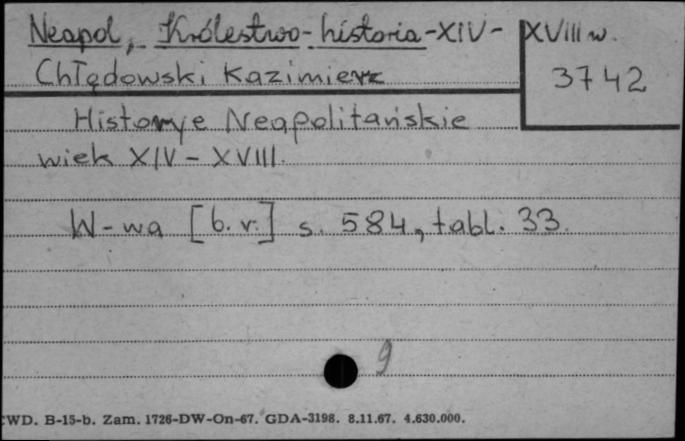 Neapol, Królestwo - historia - XIV - XVIII w.
Chłędowski Kazimierz
3742
Historye Neapolitańskie
wiek XIV - XVIII.
W-wa [b.r.] s. 584, tabl. 33.
9
CWD. B-15-b. Zam. 1726-DW-On-67. GDA-3198. 8.11.67. 4.630.000.